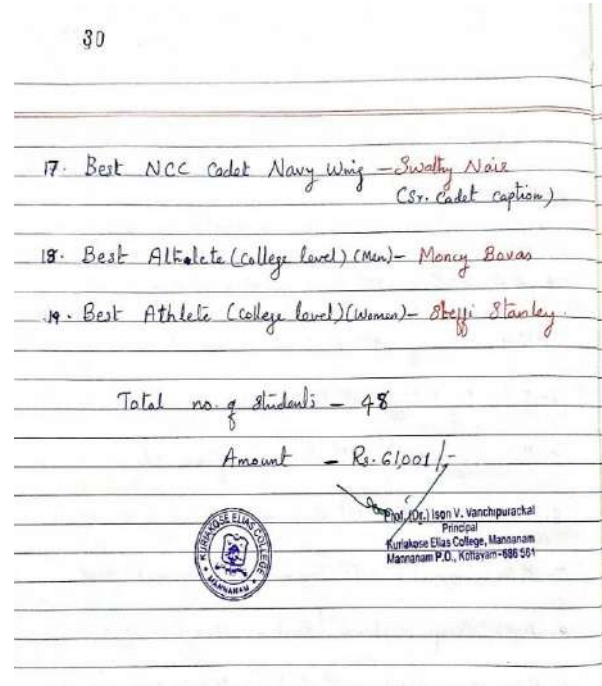 30
17. Best NCC Cadet Navy Wing – Swathy Nair
(Sr. Cadet caption)
18. Best Althlete (College level) (Men) – Moncy Bovas
19. Best Athlete (College level) (Women) – Steffi Stanley.
Total no. of students – 48
Amount – Rs. 61,001/-
Prof. (Dr.) Ison V. Vanchipurackal
Principal
Kuriakose Elias College, Mannanam
Mannanam P.O., Kottayam-686 561
KURIAKOSE ELIAS COLLEGE
MANNANAM